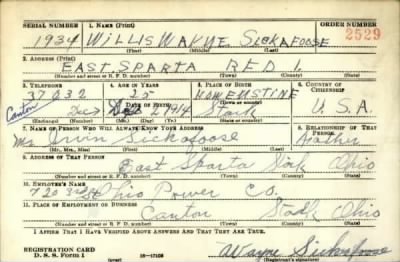 SERIAL NUMBER 1. NAME (Print) ORDER NUMBER
1934 WILLIS WAYNE SICKAFOOSE 2529
(First) (Middle) (Last)
2. ADDRESS (Print)
EAST SPARTA RFD 1
(Number and street or R. F. D. number) (Town) (County) (State)
3. TELEPHONE 4. AGE IN YEARS 5. PLACE OF BIRTH 6. COUNTRY OF CITIZENSHIP
37632 25
Canton DATE OF BIRTH (Town or county)
Dec 1914 Stark U.S.A.
(Exchange) (Number) (Mo.) (Day) (Yr.) (State or country)
7. NAME OF PERSON WHO WILL ALWAYS KNOW YOUR ADDRESS 8. RELATIONSHIP OF THAT PERSON
Mr. Sickafoose Father
(Mr., Mrs., Miss) (First) (Middle) (Last)
9. ADDRESS OF THAT PERSON
East Sparta Stark Ohio
(Number and street or R. F. D. number) (Town) (County) (State)
10. EMPLOYER'S NAME
Ohio Power Co.
11. PLACE OF EMPLOYMENT OR BUSINESS
Canton Stark Ohio
(Number and street or R. F. D. number) (Town) (County) (State)
I AFFIRM THAT I HAVE VERIFIED ABOVE ANSWERS AND THAT THEY ARE TRUE.
REGISTRATION CARD
D. S. S. Form 1 Wayne Sickafoose
(Registrant's signature)